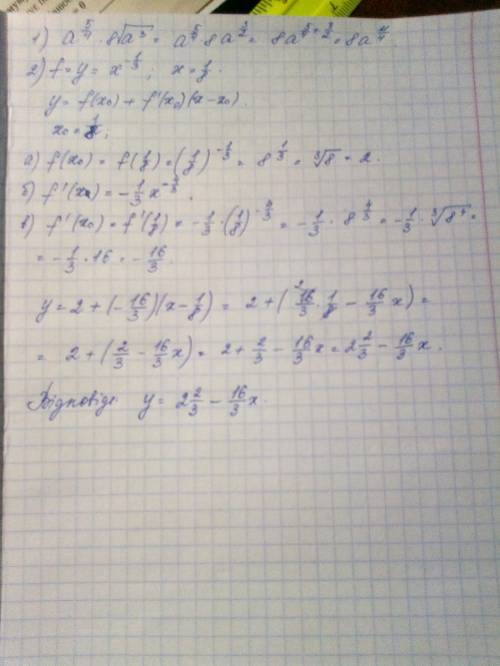 1) a^{5/4} · 8√a³ = a^{5/4} · 8a^{3/2} = 8a^{5/4 + 3/2} = 8a^{11/4}.
2) f = y = x^{-1/3}; x = 1/8.
y = f(x₀) + f'(x₀)(x - x₀).
x₀ = 1/8;
а) f(x₀) = f(1/8) = (1/8)^{-1/3} = 8^{1/3} = ∛8 = 2.
б) f'(x₀) = -1/3 x^{-4/3}.
в) f'(x₀) = f'(1/8) = -1/3 · (1/8)^{-4/3} = -1/3 · 8^{4/3} = -1/3 · ∛8⁴ =
= -1/3 · 16 = -16/3.
y = 2 + (-16/3)(x - 1/8) = 2 + (16/3 · 1/8 - 16/3 x) =
= 2 + (2/3 - 16/3 x) = 2 + 2/3 - 16/3 x = 2 2/3 - 16/3 x.
Відповідь: y = 2 2/3 - 16/3 x.